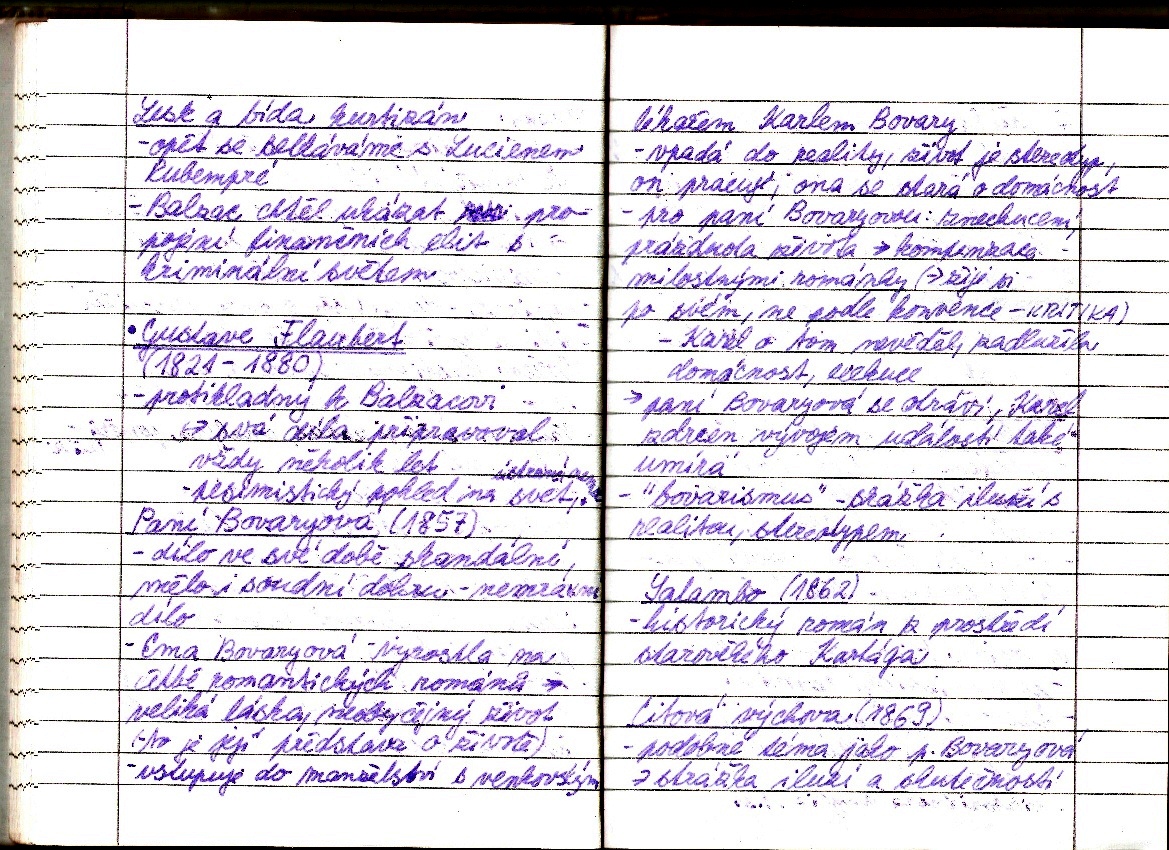 Lesk a bída kurtizán
- opět se setkáváme s Lucienem
Rubempré
- Balzac chtěl ukázat pro-
pojení finančních elit s
kriminální světem
• Gustave Flaubert
(1821 - 1880)
- protikladný k Balzacovi
→ svá díla připravoval
vždy několik let
- pesimistický pohled na svět,
Paní Bovaryová (1857)
- dílo ve své době skandální,
mělo i soudní dohru - nemravné
dílo
- Ema Bovaryová - vyrostla na
četbě romantických románů →
veliká láska, neobyčejný život
(to je její představa o životě)
- vstupuje do manželství s venkovským
lékařem Karlem Bovary
- vpadá do reality, život je stereotyp,
on pracuje, ona se stará o domácnost
- pro paní Bovaryovou: znechucení,
prázdnota života → kompenzace
milostnými románky (→ žije si
po svém, ne podle konvence - KRITIKA)
- Karel o tom nevěděl, zadlužila
domácnost, exekuce
→ paní Bovaryová se otráví, Karel
zdrcen vývojem událostí také
umírá
- "bovarismus" - srážka iluzí s
realitou, stereotypem
Salambo (1862)
- historický román z prostředí
starověkého Kartága
Citová výchova (1869)
- podobné téma jako p. Bovaryová
→ srážka iluzí a skutečností